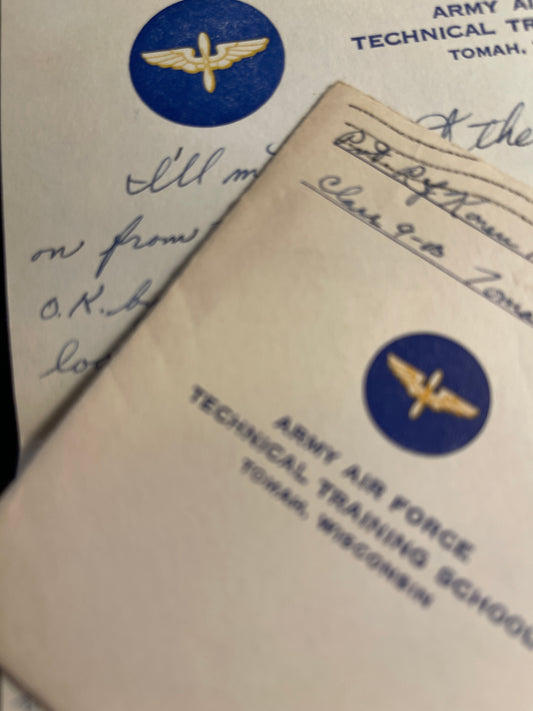 ARMY AI
TECHNICAL TRA
TOMAH,
the
I'll mi
on from
O.K. b
loo
Pvt. Ray
Class 9-10 Toma
ARMY AIR FORCE
TECHNICAL TRAINING SCHOOL
TOMAH, WISCONSIN